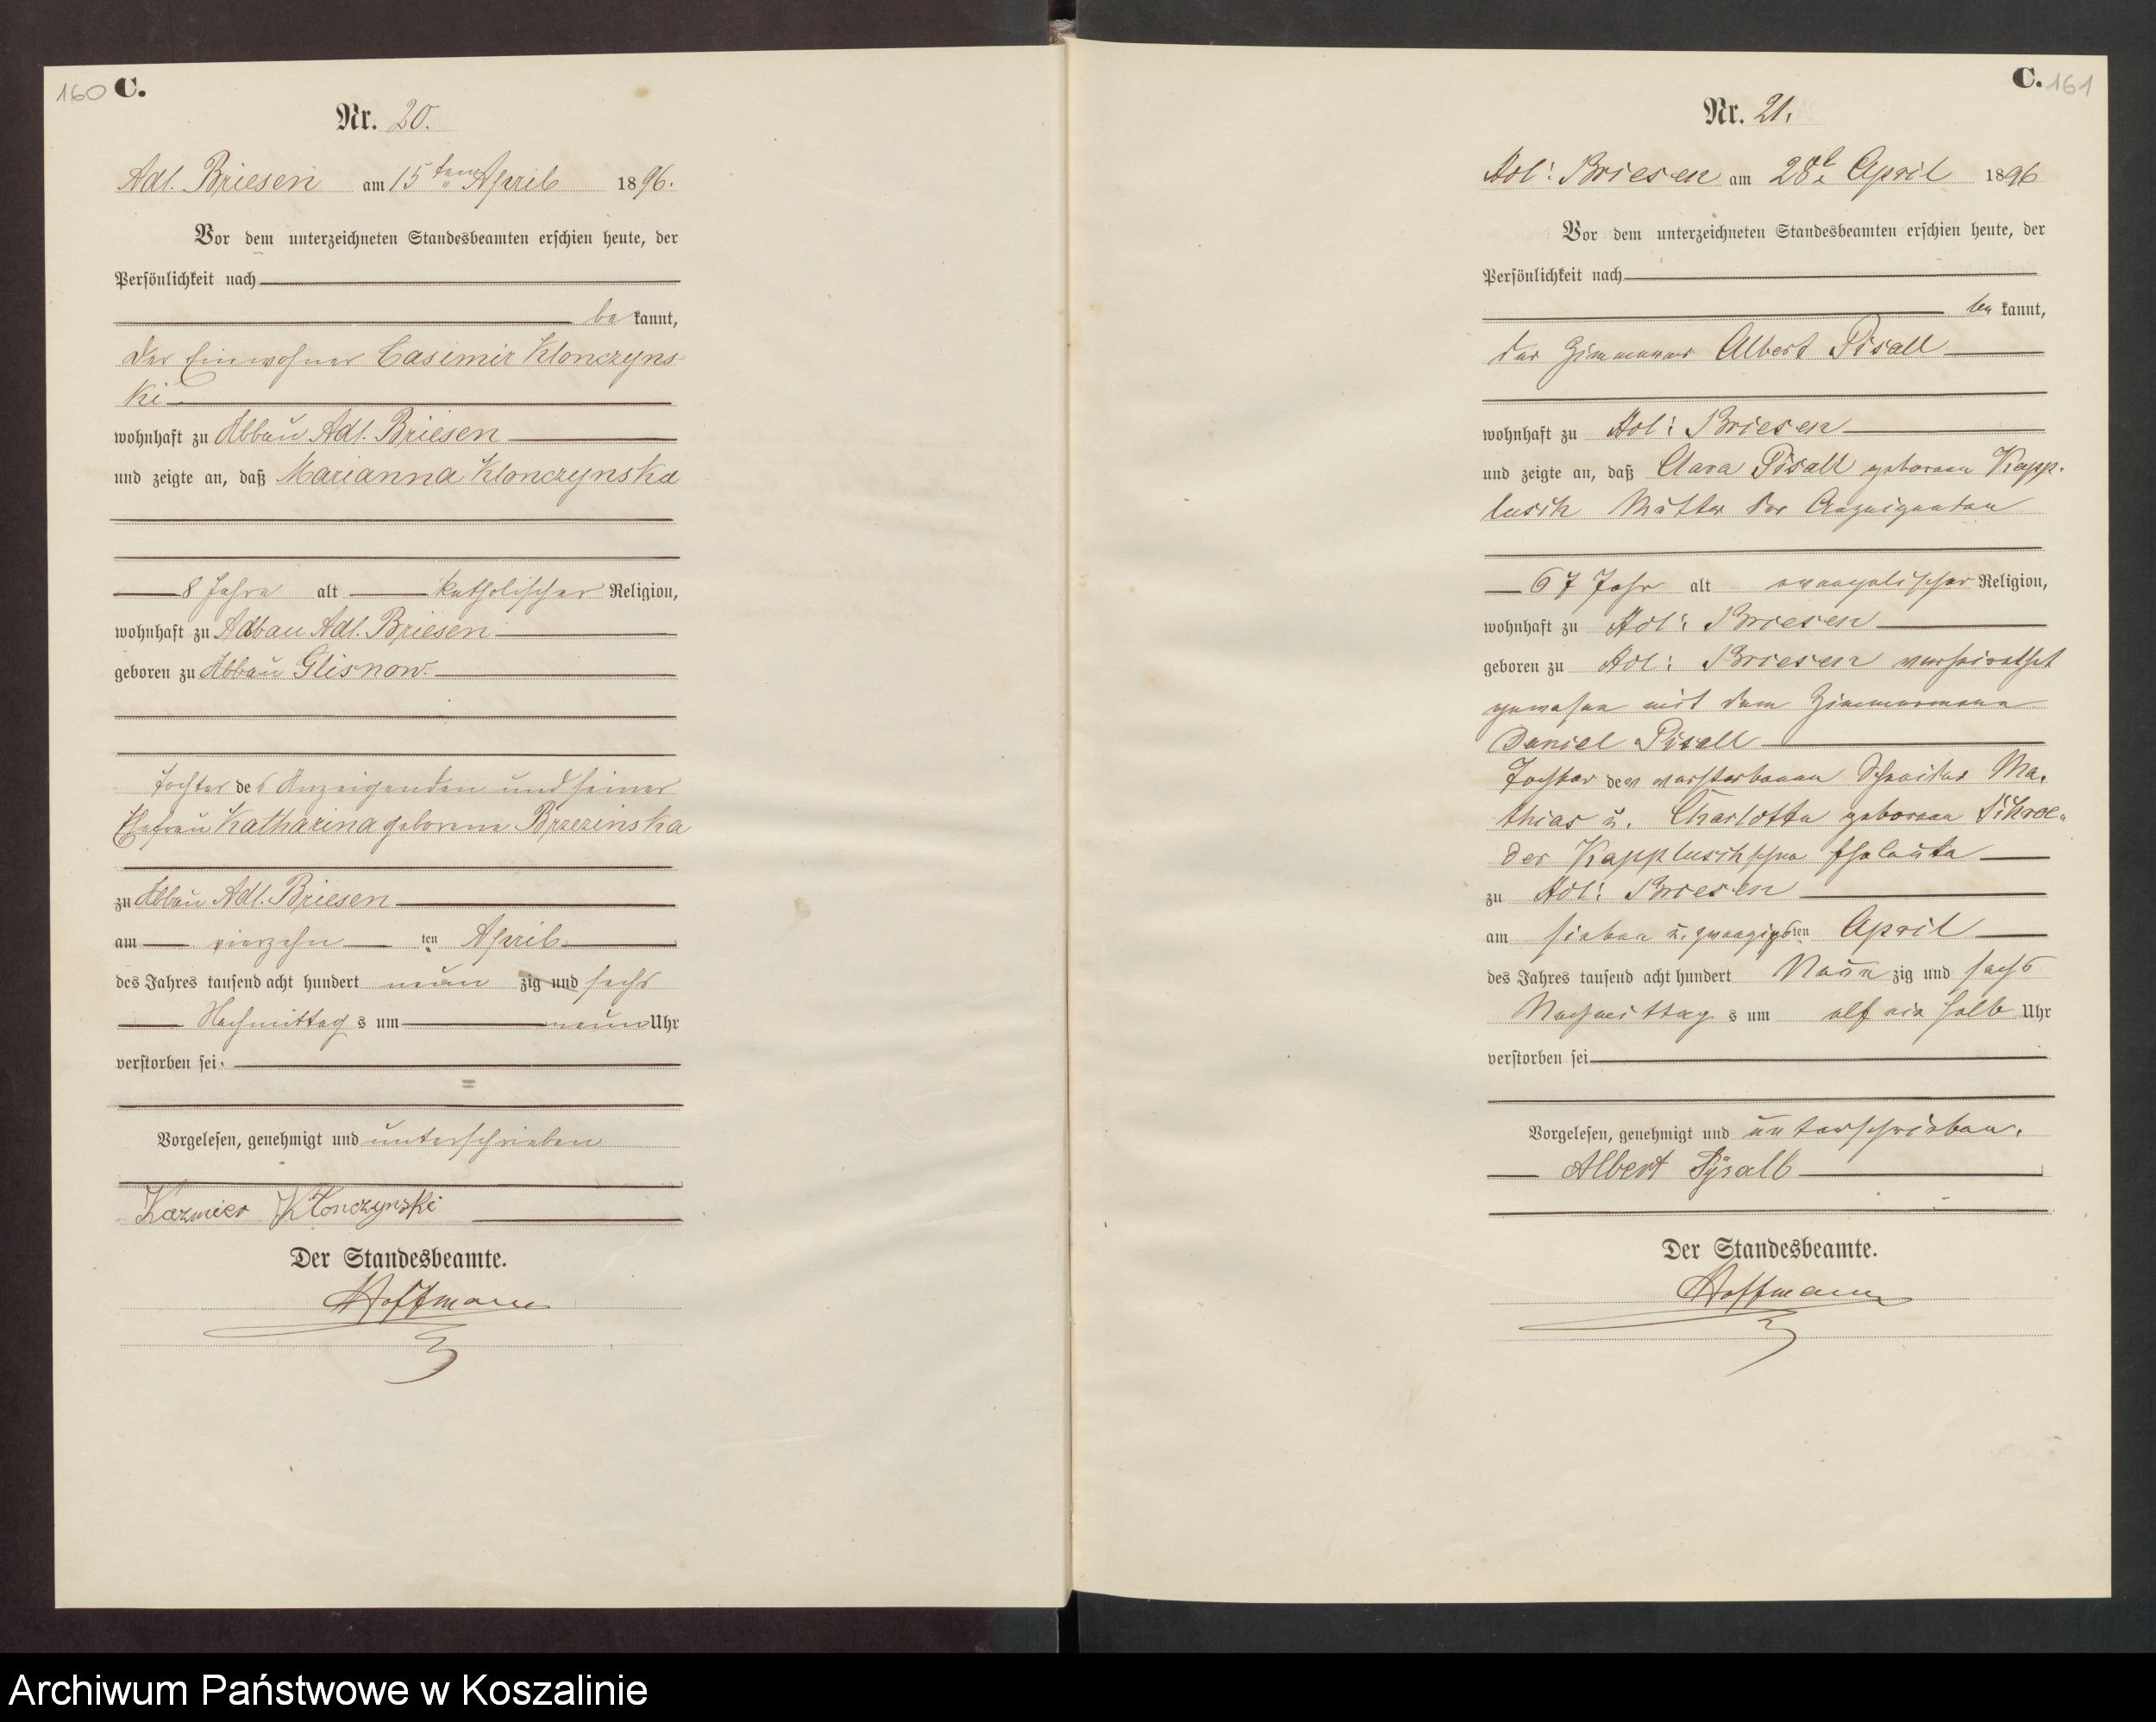 160 C.
Nr. 20.
Adl. Briesen am 15ten April 1896.
Vor dem unterzeichneten Standesbeamten erschien heute, der
Persönlichkeit nach
be kannt,
der Einwohner Casimir Klonczyns-
ki
wohnhaft zu Abbau Adl. Briesen
und zeigte an, daß Marianna Klonczynska
8 Jahre alt katholischer Religion,
wohnhaft zu Adbau Adl. Briesen
geboren zu Abbau Glisnow.
Tochter des Anzeigenden und seiner
Ehefrau Katharina geborene Brzezinska
zu Abbau Adl. Briesen
am vierzehn ten April
des Jahres tausend acht hundert neun zig und sechs
Nachmittag s um neun Uhr
verstorben sei.
Vorgelesen, genehmigt und unterschrieben
Kazmier Klonczynski
Der Standesbeamte.
Hoffmann
C. 161
Nr. 21.
Adl: Briesen am 28t April 1896
Vor dem unterzeichneten Standesbeamten erschien heute, der
Persönlichkeit nach
be kannt,
der Zimmerer Albert Pisall
wohnhaft zu Adl: Briesen
und zeigte an, daß Clara Pisall geborene Kapp-
lusch Mutter des Anzeigenden
67 Jahr alt evangelischer Religion,
wohnhaft zu Adl: Briesen
geboren zu Adl: Briesen verheirathet
gewesen mit dem Zimmermann
Daniel Pisall
Tochter der verstorbenen Schneider Ma-
thias u. Charlotte geborene Schroe-
der Kapplusch'schen Eheleute
zu Adl: Briesen
am sieben u. zwanzigsten April
des Jahres tausend acht hundert Neun zig und sechs
Nachmittag s um elf ein halb Uhr
verstorben sei
Vorgelesen, genehmigt und unterschrieben.
Albert Pysall
Der Standesbeamte.
Hoffmann
Archiwum Państwowe w Koszalinie